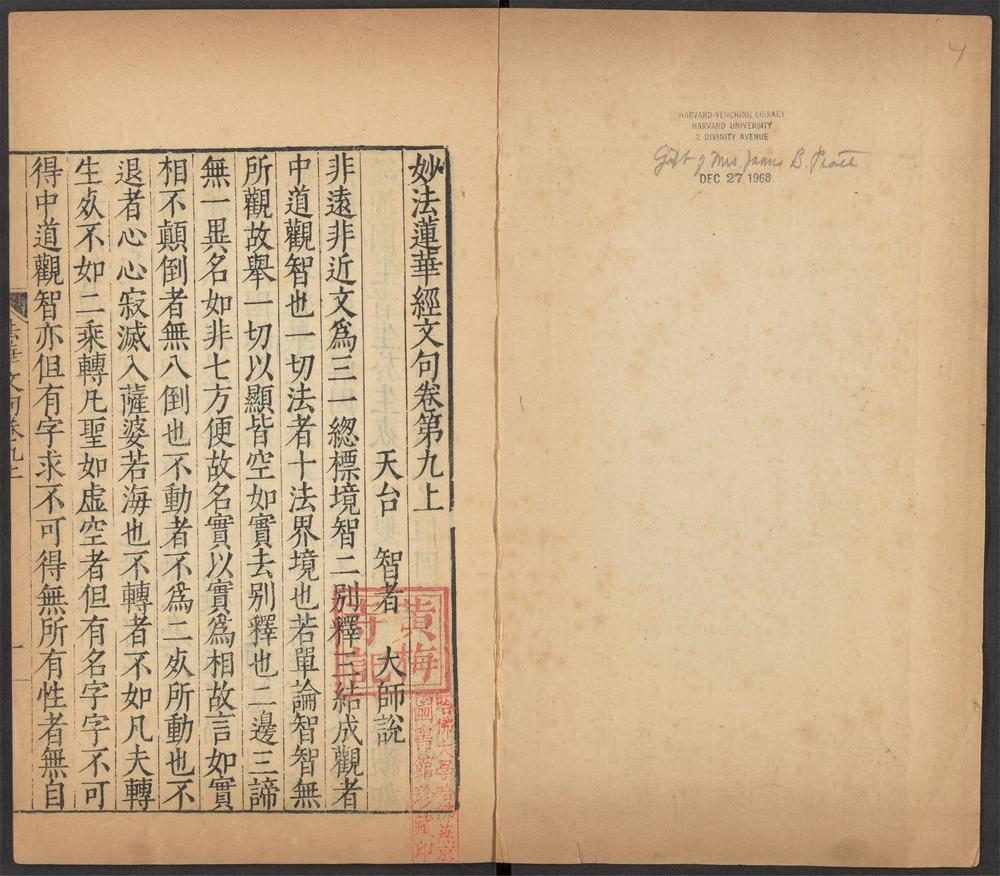 妙法蓮華經文句卷第九上
天台 智者 大師說
非遠非近文爲三一緫標境智二別釋三結成觀者
中道觀智也一切法者十法界境也若單論智智無
所觀故舉一切以顯皆空如實去別釋也二邊三諦
無一異名如非七方便故名實以實爲相故言如實
相不顛倒者無八倒也不動者不爲二𠁅所動也不
退者心心寂滅入薩婆若海也不轉者不如凡夫轉
生𠁅不如二乘轉凡聖如虛空者但有名字字不可
得中道觀智亦但有字求不可得無所有性者無自
法華文句卷九上
一
黃梅
寺記
哈佛大學哈佛燕京
圖書館珍藏印
HARVARD-YENCHING LIBRARY
HARVARD UNIVERSITY
2 DIVINITY AVENUE
Gift of Mrs James B. Pratt
DEC 27 1968